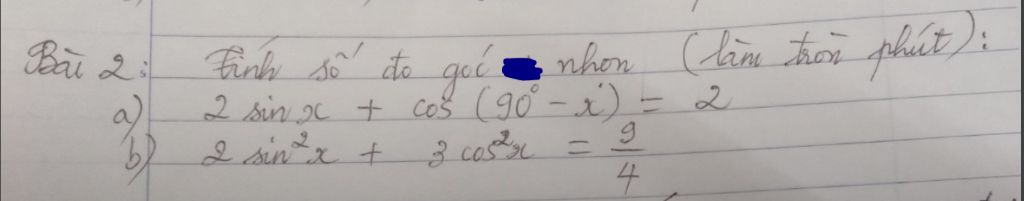 Bài 2: Tính số đo góc nhọn (làm tròn phút):
a) 2 sin x + cos (90° - x) = 2
b) 2 sin²x + 3 cos²x = 9/4